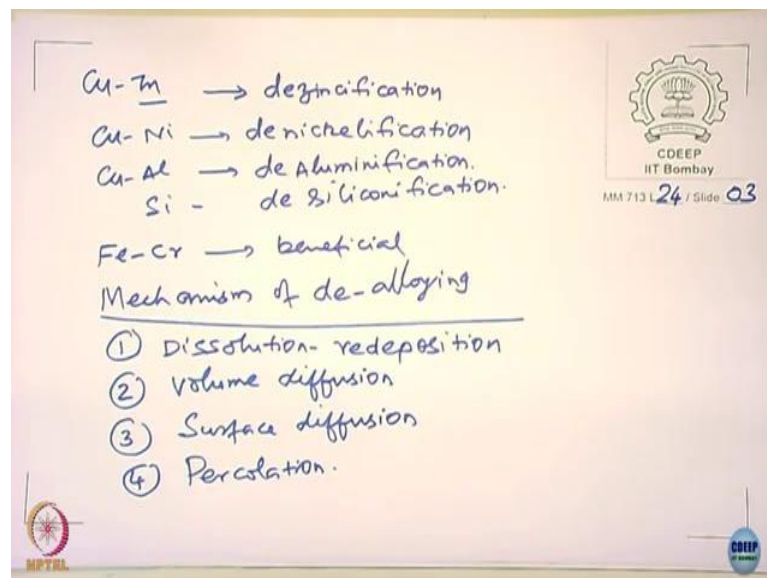 Cu-Zn → dezincification
Cu-Ni → denickelification
Cu-Al → de Aluminification.
Si - de siliconification.
Fe-Cr → beneficial
Mechanism of de-alloying
① Dissolution-redeposition
② Volume diffusion
③ Surface diffusion
④ Percolation.
CDEEP
IIT Bombay
MM 713 L 24 / Slide 03
NPTEL
CDEEP
IIT BOMBAY